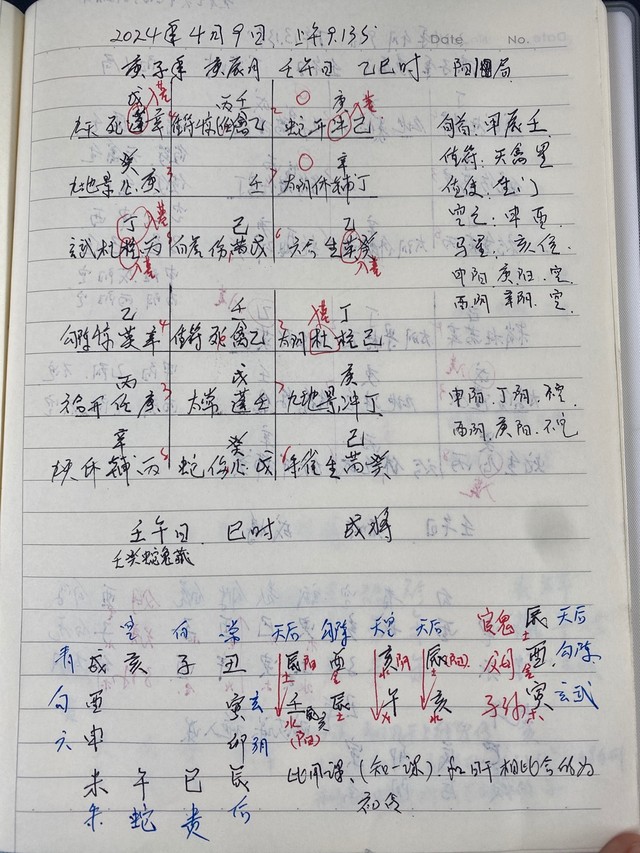 2024年4月9日 上午9.135
Date No.
庚子年 庚辰月 壬午日 乙巳时 阳1局
戊入墓 丙壬 〇 庚入墓
天 死蓬辛4 值符惊禽乙 2 蛇开 己
癸 〇 辛
九地景 庚 3 壬 7 太阴休辅丁
丁入墓 己 乙
玄武杜 丙 8 白 伤 戊 6 六合生 癸
入墓 入墓
旬首:甲辰壬
值符:天禽星
值使:生门
空亡:申酉
马星:亥位
申阳庚阳.空
酉阴辛阴.空
己 壬 丁
勾陈惊英辛4 值符死禽乙 2 太阴杜柱己
丙 戊 庚
六合开任庚 3 太常蓬壬 7 九地景冲丁
辛 癸 己
休辅丙 蛇伤心戊 6 朱雀生芮癸
申阳.丁阴.不空
酉阴.庚阳.不空
壬午日. 巳时 戌将
壬癸蛇兔藏
空 白 常 天后 勾陈 天空 天后 官鬼 辰土 天后
青 戌 亥 子 丑 辰阳土 酉金 亥阴水 辰(阳)土 父母 酉金 勾陈
勾 酉 寅 玄 壬水 辰土 午火 亥水 子孙 寅木 玄武
六 申 卯 阴 (阳)
未 午 巳 辰 比用课.(知一课).和日干相比合的为
朱 蛇 贵 后 初传